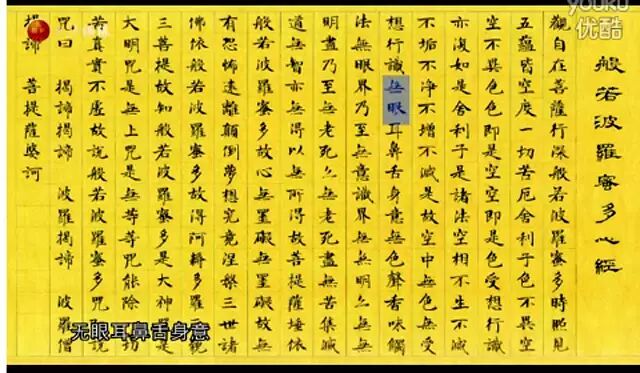 般若波羅蜜多心經
觀自在菩薩行深般若波羅蜜多時照見
五蘊皆空度一切苦厄舍利子色不異空
空不異色色即是空空即是色受想行識
亦復如是舍利子是諸法空相不生不滅
不垢不淨不增不減是故空中無色無受
想行識無眼耳鼻舌身意無色聲香味觸
法無眼界乃至無意識界無無明亦無無
明盡乃至無老死亦無老死盡無苦集滅
道無智亦無得以無所得故菩提薩埵依
般若波羅蜜多故心無罣礙無罣礙故無
有恐怖遠離顛倒夢想究竟涅槃三世諸
佛依般若波羅蜜多故得阿耨多羅三藐
三菩提故知般若波羅蜜多是大神咒是
大明咒是無上咒是無等等咒能除一切
苦真實不虛故說般若波羅蜜多咒即說
咒曰 揭諦揭諦 波羅揭諦 波羅僧
揭諦 菩提薩婆訶
无眼耳鼻舌身意
YOUKU
优酷